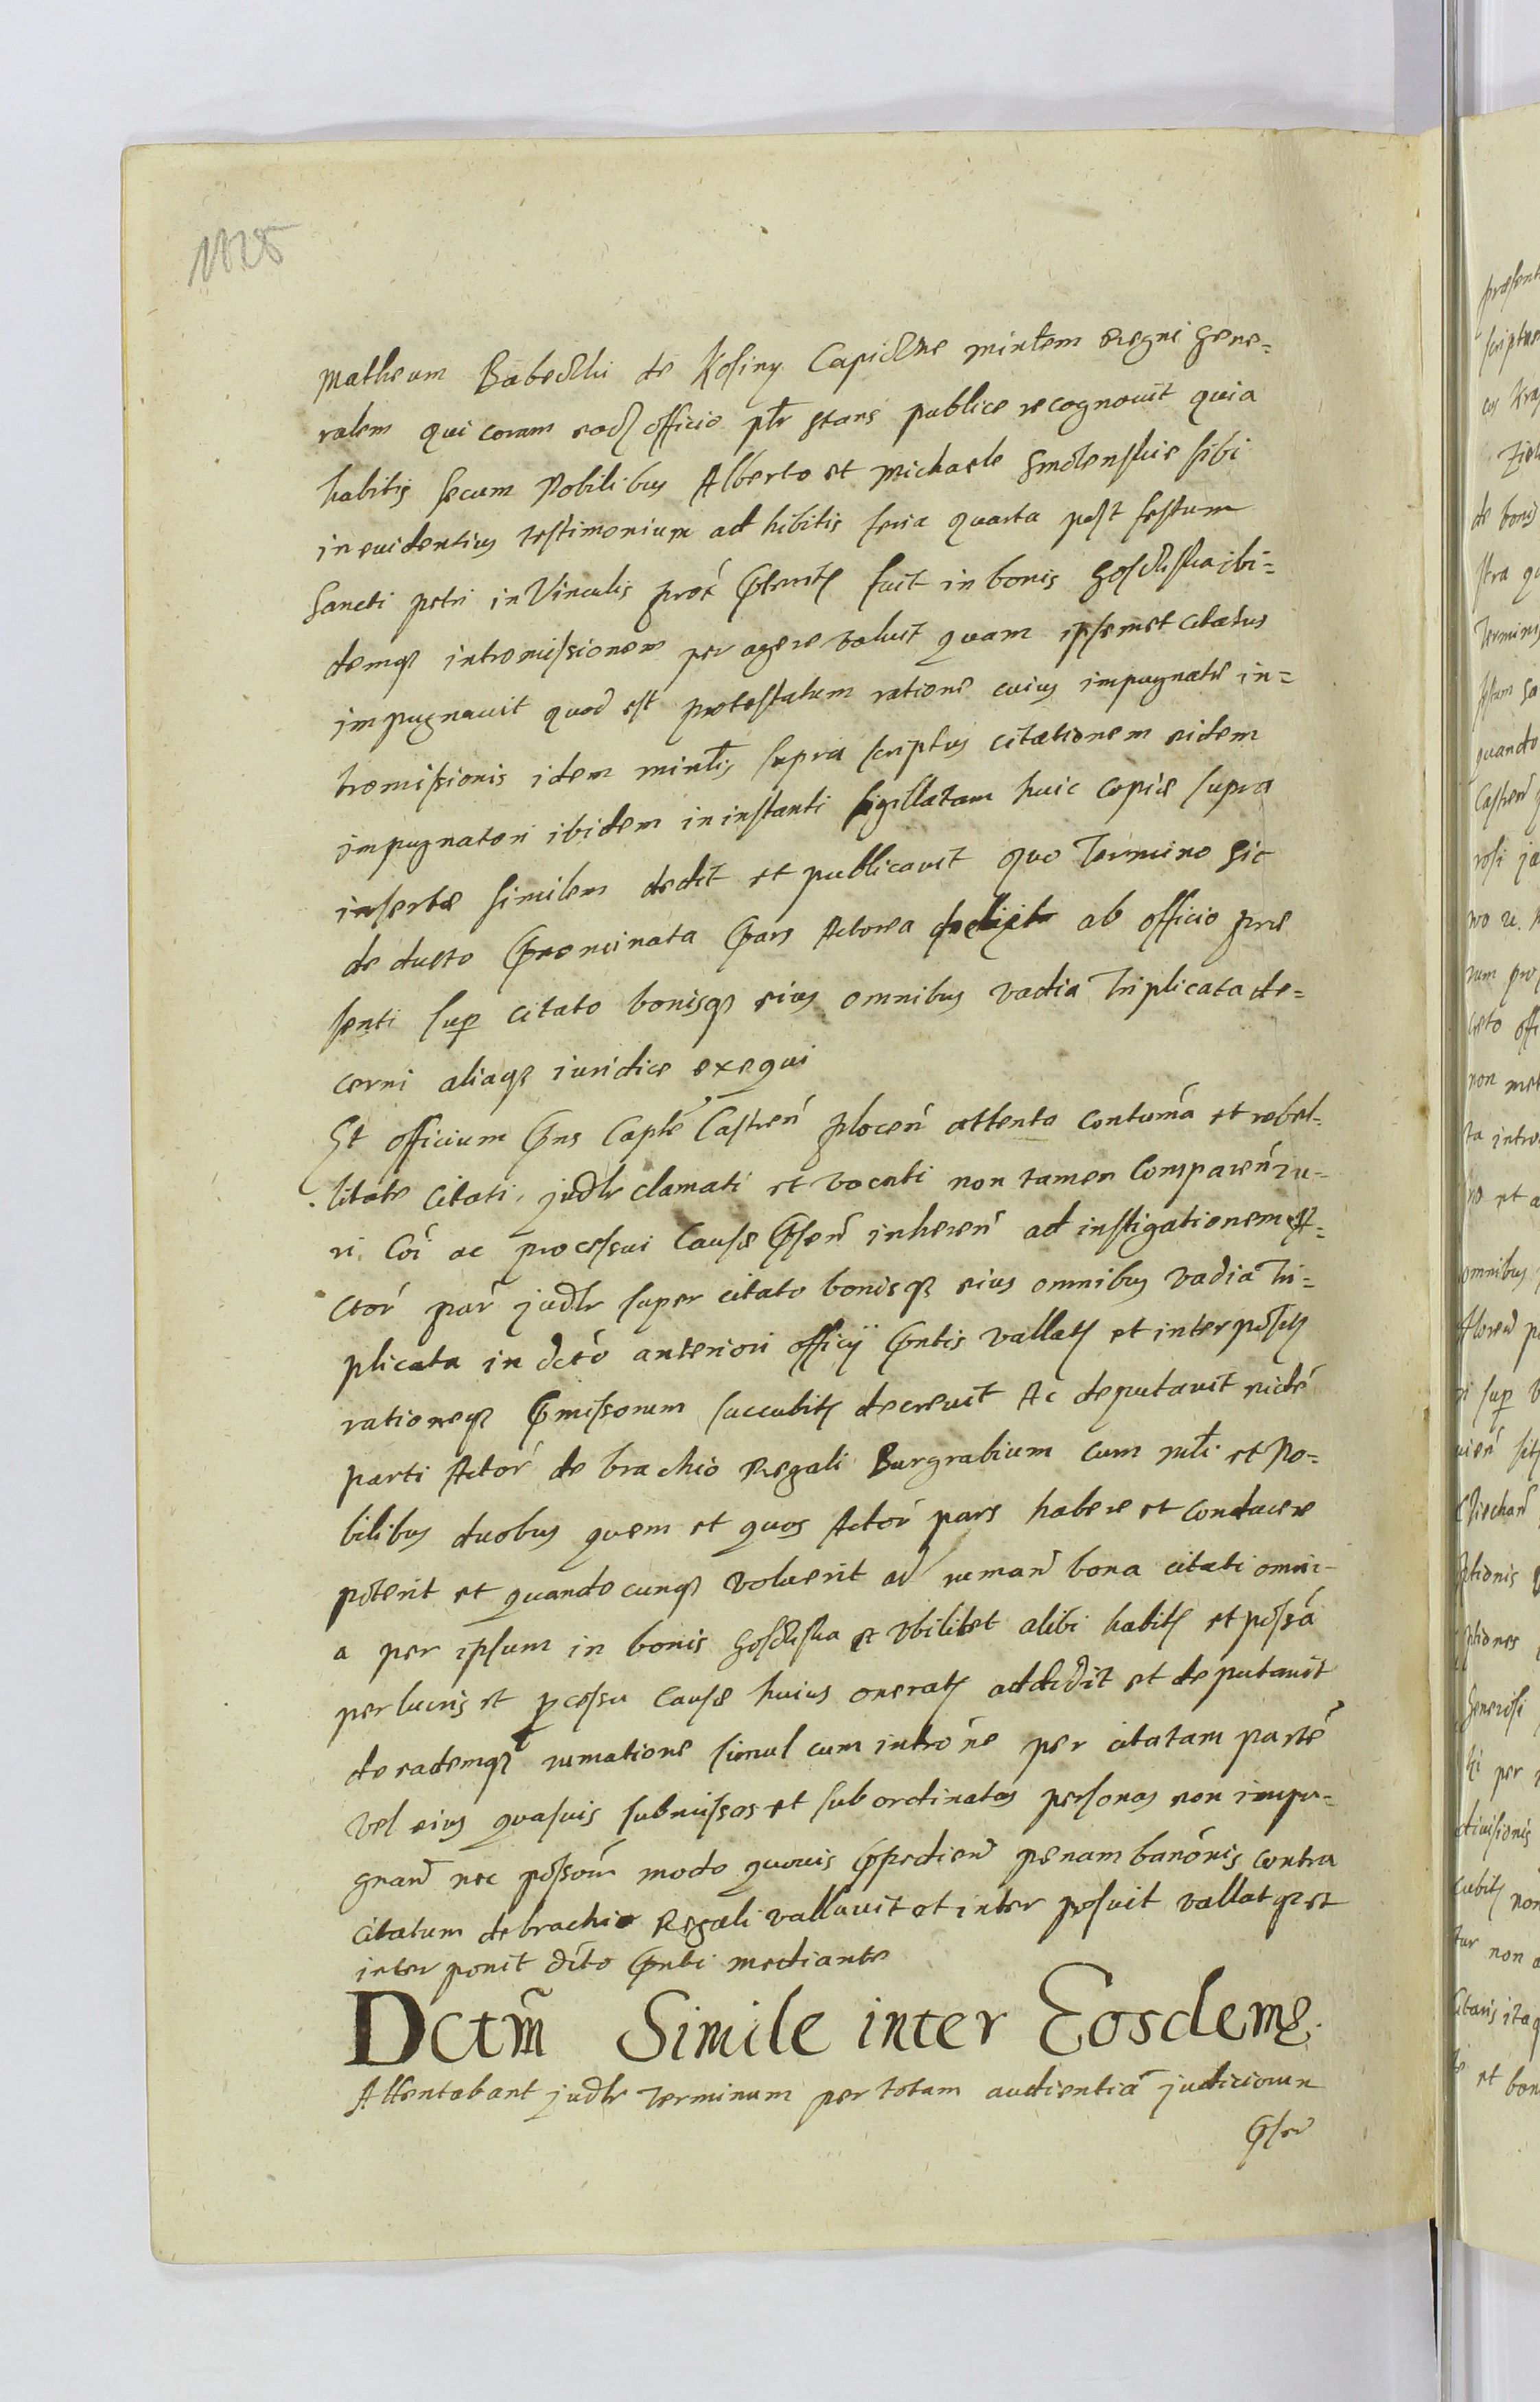 Matheum de Kosiny minłem Regni Gene=
ralem qui coram eod officio płr stans publice recognouit quia
habitis secum Nobilibus Alberto et Michaele Smolenskie sibi
in euidentius testimonium ad hibitis feria quarta post festum
Sancti petri in Vinculis fuit in bonis ibi=
demq intromissionem per agere voluit quam ipsemet citatus
impugnauit quod est protestatum ratione cuius impugnatæ in=
tromissionis idem minłis supra scriptus citationem eidem
impugnatori ibidem in instanti sigillatam huic copiæ supra
insertæ similem dedit et publicauit quo Termino sic
de ducto pars Actorea ab officio præ
senti sup citato bonisq eius omnibus vadia Triplicata de=
cerni aliaq iuridice exequi
Et officium pns Capłe Castreń płoceń attenta contumá et rebel-
litate Citati, judłr clamati et vocati non tamen Compareń iu-
ri Coi ac processui Causæ pseń inhereń ad instigationem A=
ctoŕ paŕ judłr super citato bonisq eius omnibus vadia Tri=
plicata in dcto anteriori officij pntis vallatꝭ et interpositꝭ
rationeq pmissorum succubitꝭ decreuit Ac deputauit eidé
parti Actoŕ de brachio Regali Burgrabium cum młi et No=
bilibus duobus quem et quos Actoŕ pars habere et conducere
poterit et quandocunq voluerit ad rumand bona citati omni-
a per ipsum in bonis et vbilibet alibi habitꝭ et possá
per lucris et pcessu Causæ huius oneratꝭ addidit et deputauit
de eademq rumatione simul cum introne per citatam parté
vel eius quasuis submissas et subordinatas personas non impu-
gnand nec modo quouis ppediend penam banónis contra
citatum de brachio Regali vallauit et inter posuit vallat q et
inter ponit dcto pnti mediante
Dctm̃ Simile inter Eosdem.
Attentabant judłr Terminum per totam audientiã judiciorum
pseń